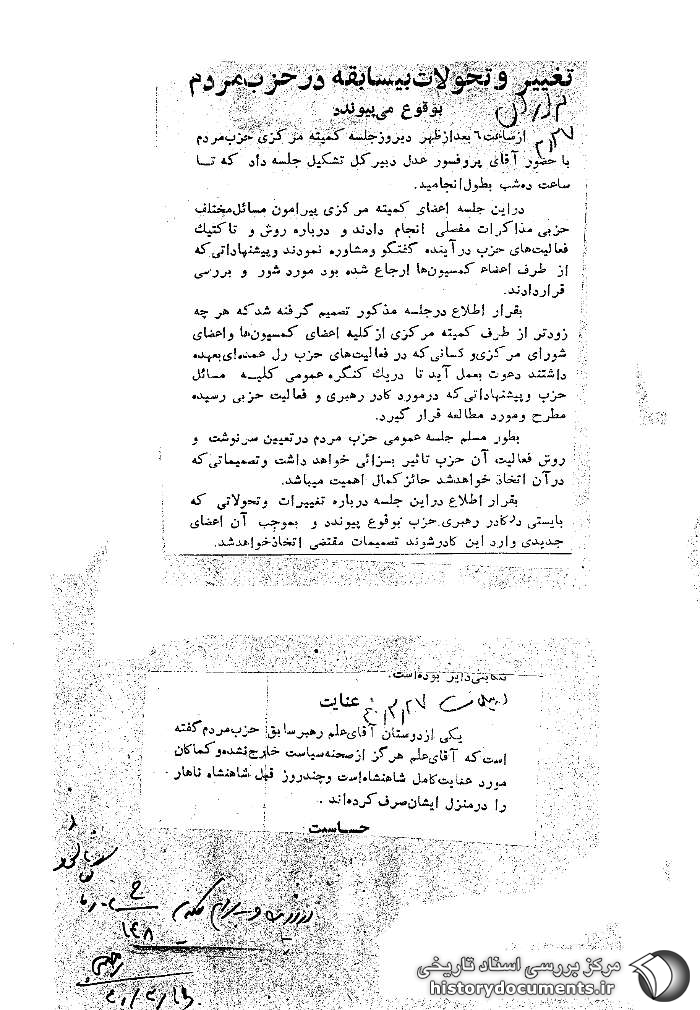 تغییر و تحولات بیسابقه در حزب مردم
بوقوع می‌پیوندد
از ساعت ٦ بعد از ظهر دیروز جلسه کمیته مرکزی حزب مردم
با حضور آقای پروفسور عدل دبیر کل تشکیل جلسه داد که تا
ساعت ده شب بطول انجامید.
در این جلسه اعضای کمیته مرکزی پیرامون مسائل مختلف
حزبی مذاکرات مفصلی انجام دادند و درباره روش و تاکتیک
فعالیت‌های حزب در آینده گفتگو و مشاوره نمودند و پیشنهاداتی که
از طرف اعضاء کمسیون‌ها ارجاع شده بود مورد شور و بررسی
قرار دادند.
بقرار اطلاع در جلسه مذکور تصمیم گرفته شد که هر چه
زودتر از طرف کمیته مرکزی از کلیه اعضای کمسیون‌ها و اعضای
شورای مرکزی و کسانی که در فعالیت‌های حزب رل عمده‌ای بعهده
داشتند دعوت بعمل آید تا در یک کنگره عمومی کلیه مسائل
حزب و پیشنهاداتی که در مورد کادر رهبری و فعالیت حزبی رسیده
مطرح و مورد مطالعه قرار گیرد.
بطور مسلم جلسه عمومی حزب مردم در تعیین سرنوشت و
روش فعالیت آن حزب تاثیر بسزائی خواهد داشت و تصمیماتی که
در آن اتخاذ خواهد شد حائز کمال اهمیت میباشد.
بقرار اطلاع در این جلسه درباره تغییرات و تحولاتی که
بایستی در کادر رهبری حزب بوقوع پیوندد و بموجب آن اعضای
جدیدی وارد این کادر شوند تصمیمات مقتضی اتخاذ خواهد شد.
بوده است.
عنایت
٤٠/٣/٢٧
یکی از دوستان آقای علم رهبر سابق حزب مردم گفته
است که آقای علم هرگز از صحنه سیاست خارج نشده و کماکان
مورد عنایت کامل شاهنشاه است و چند روز قبل شاهنشاه ناهار
را در منزل ایشان صرف کرده‌اند.
حساسیت
مرکز بررسی اسناد تاریخی
historydocuments.ir